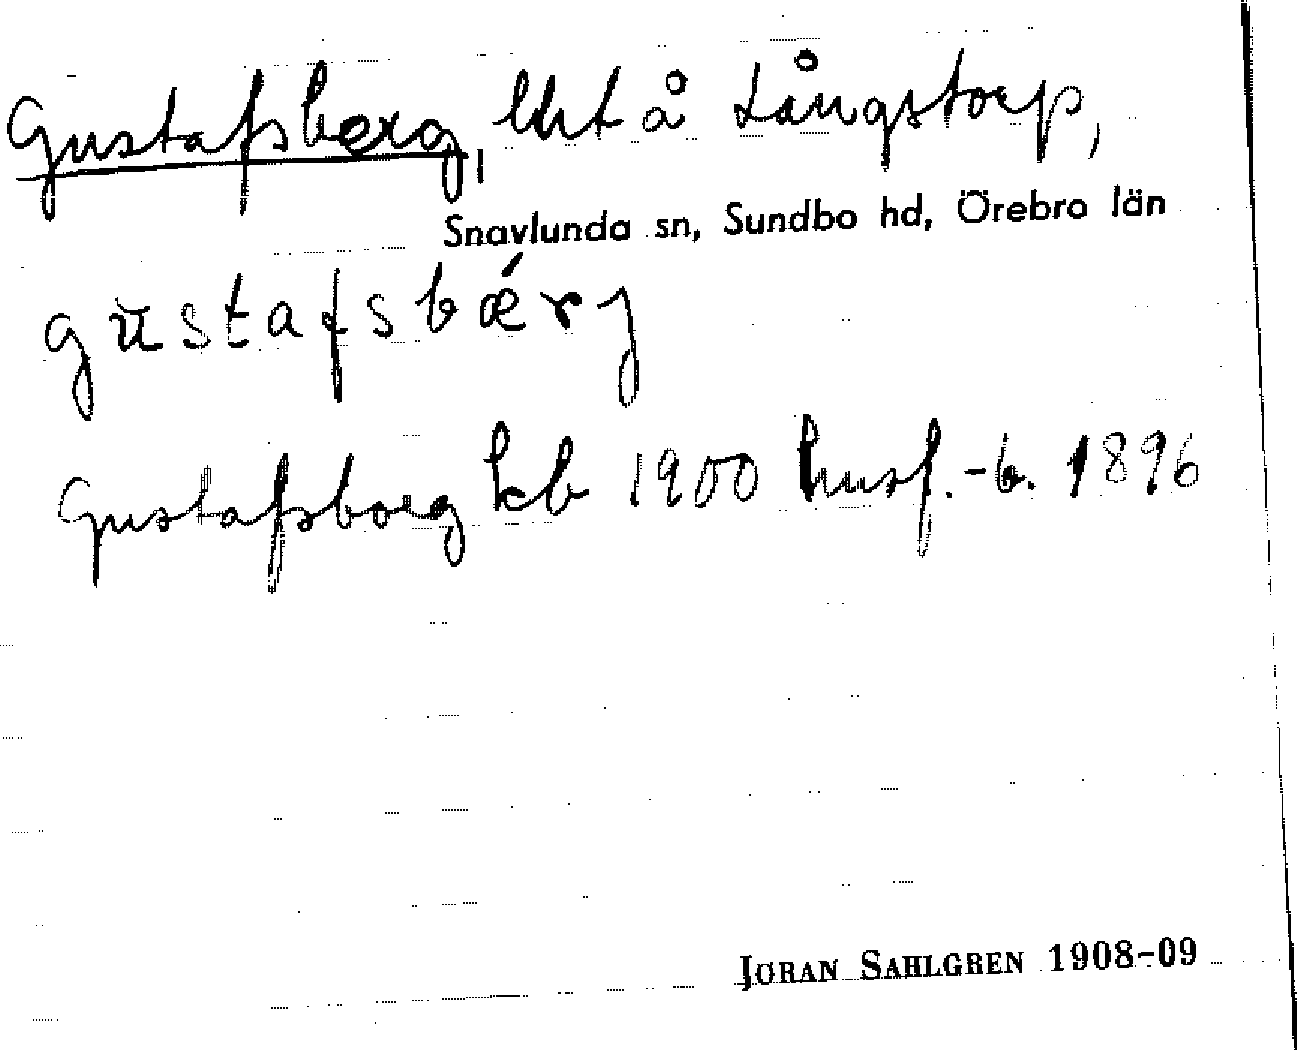 Gustafsberg, lht å Långstorp,
Snavlunda sn, Sundbo hd, Örebro län
gustafsbǽrj
Gustafsborg kb 1900 husf.-b. 1896
JÖRAN SAHLGREN 1908-09